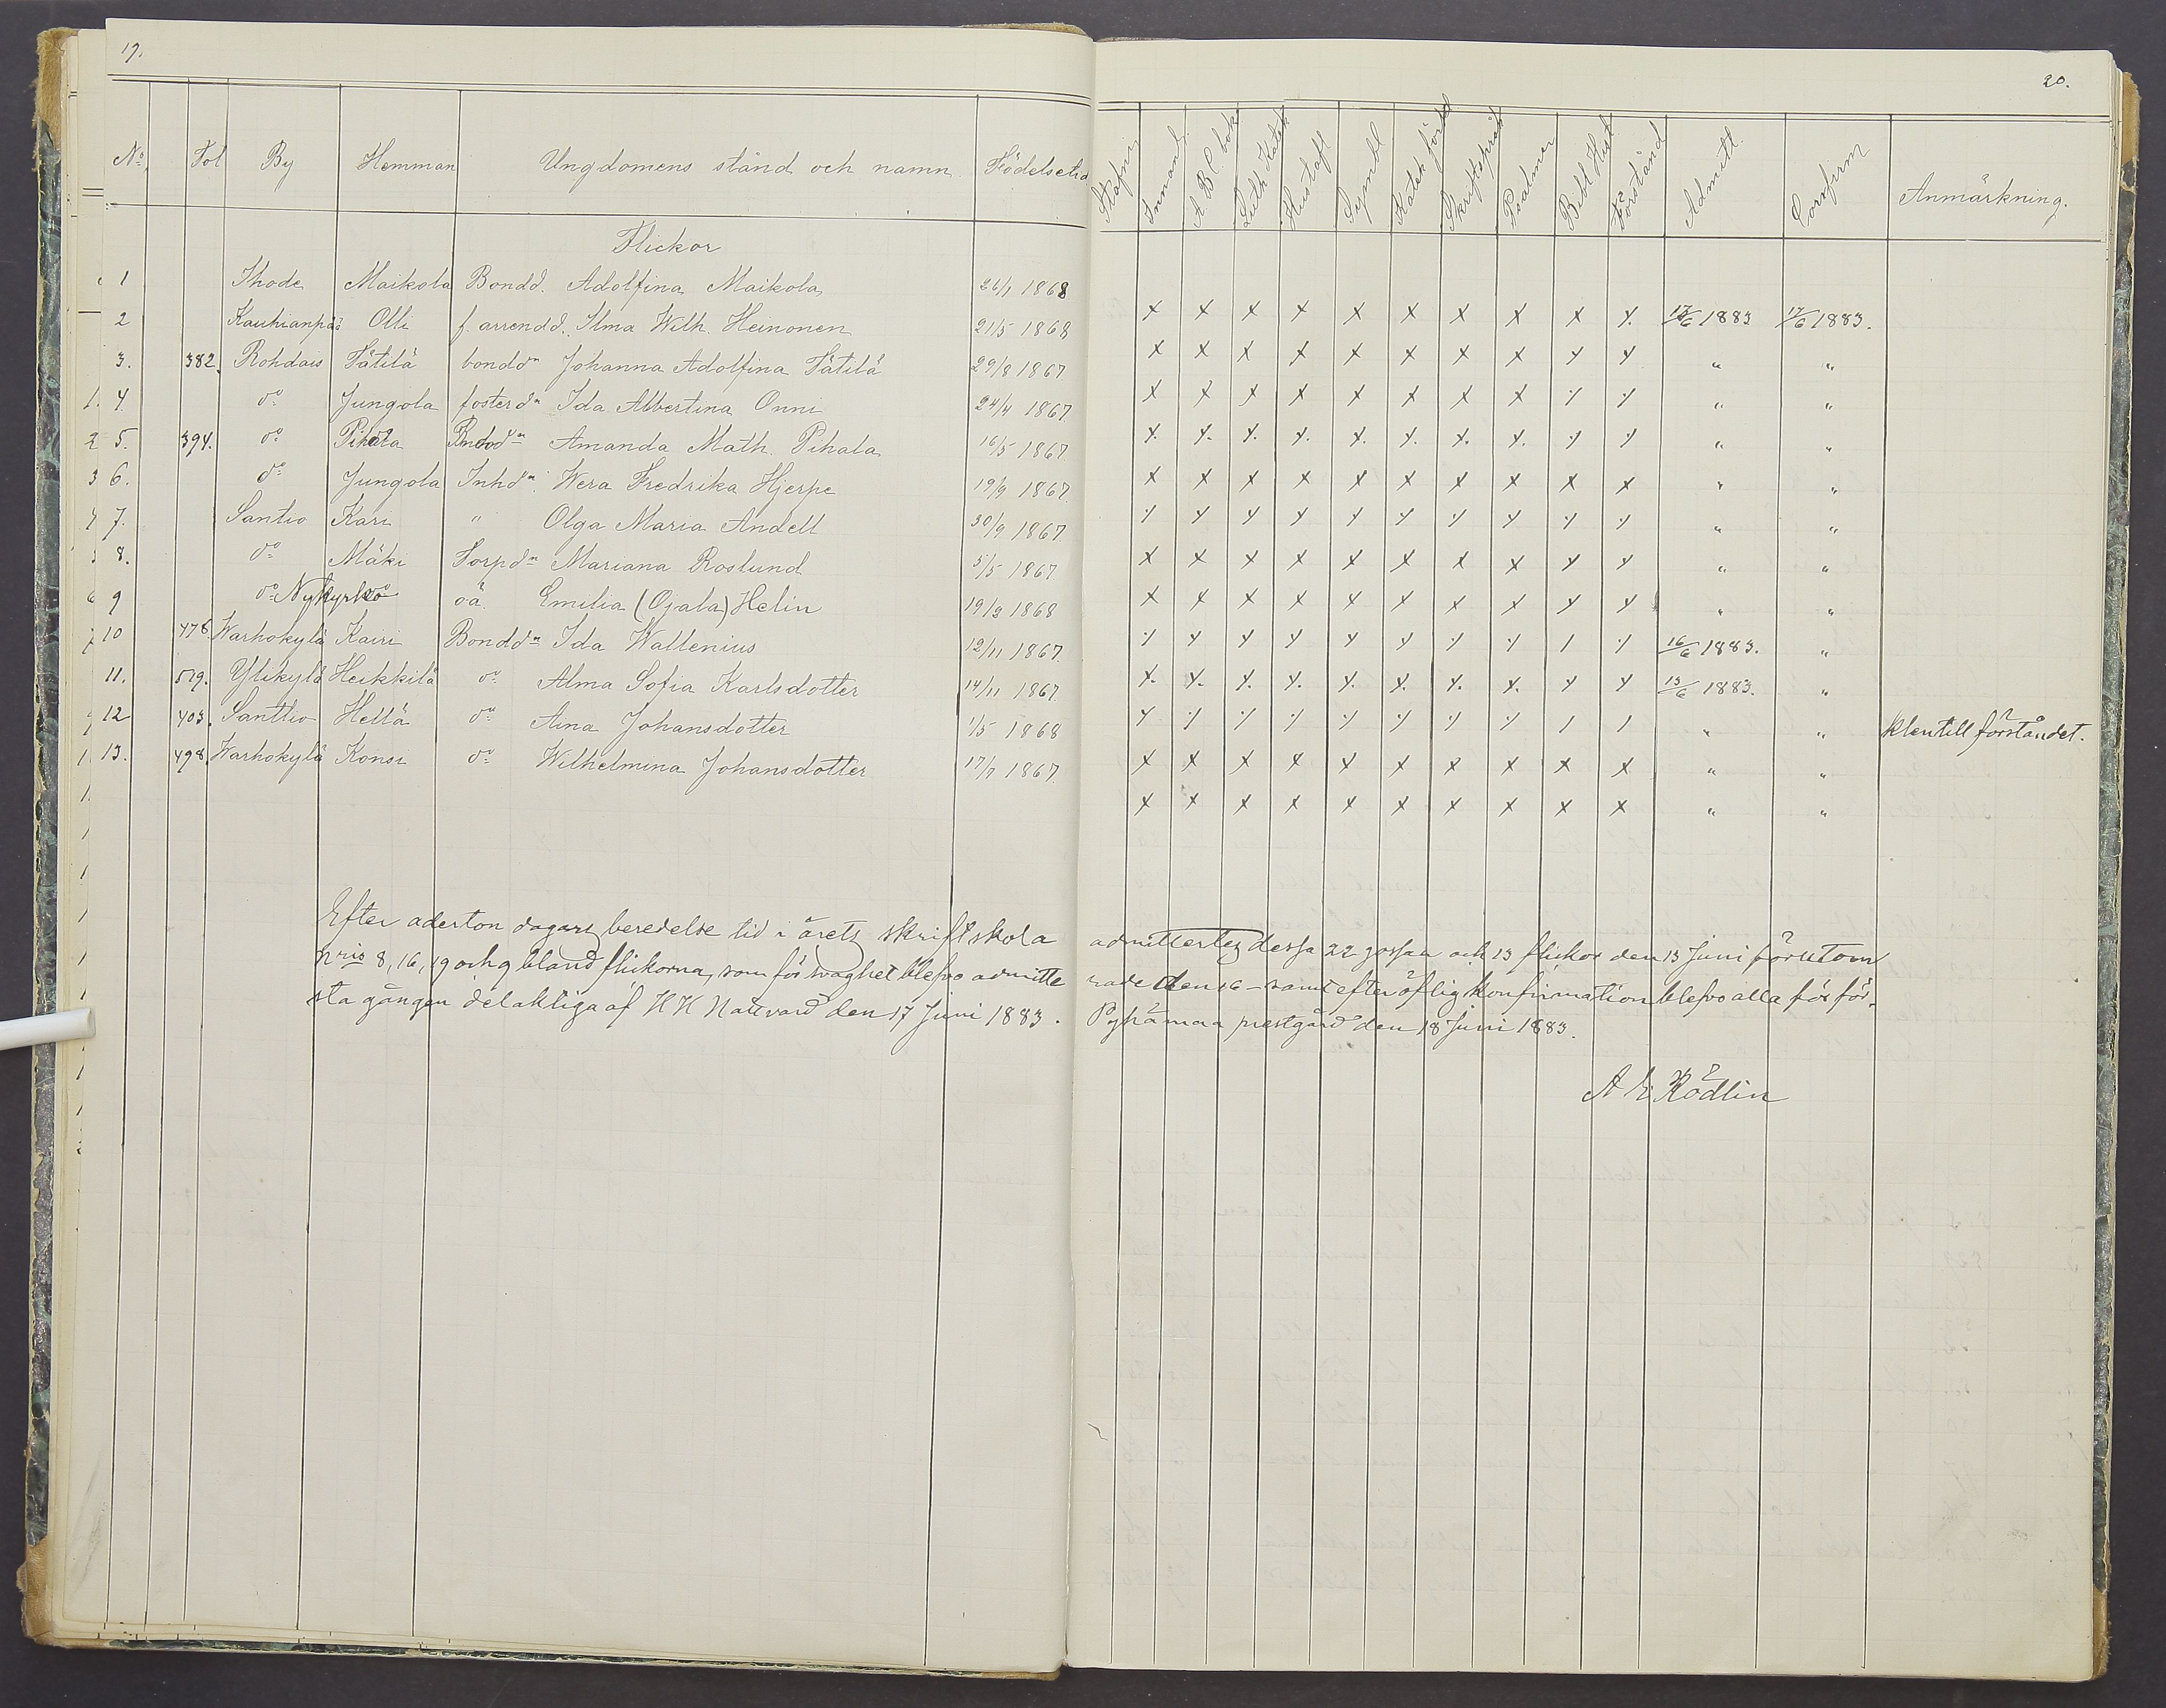 19.
20.
No Fol By Hemman Ungdomens stånd och namn Födelsetid
Innanl. A B C bok Luth. Katek Hustafl Symbl Katek förkl Skriftspråk Psalmer Bibl Hist Förstånd Admitt. Confirm Anmärkning.
Flickor
1 Ihode Maikola Bondd. Adolfina Maikola 26/1 1868 x x x x x x x x x x 13/6 1883 17/6 1883.
2 Kauhianpää Olli f. arrendd. Ilma Wilh. Heinonen 21/5 1868 x x x x x x x x x x " "
3. 382. Rohdais Tätilä bonddn Johanna Adolfina Tätilä 29/8 1867 x x x x x x x x x x " "
4. do Jungola fosterdn Ida Albertina Onni 24/4 1867. x x x x x x x x x x " "
5. 394. do Pihala Bonddn Amanda Math. Pihala 16/5 1867 x x x x x x x x x x " "
6. do Jungola Inhdn. Wera Fredrika Hjerpe 19/9 1867. x x x x x x x x x x " "
7. Santio Kari " Olga Maria Andell 30/9 1867 x x x x x x x x x x " "
8. do Mäki Torpdn Mariana Roslund 5/5 1867 x x x x x x x x x x " "
9 do Nykyrko oä Emilia (Ojala) Helin 19/3 1868 x x x x x x x x x x 16/6 1883. "
10 476. Warhokylä Kairi Bonddn Ida Wallenius 12/11 1867. x x x x x x x x x x 13/6 1883. "
11. 519. Ylikylä Heikkilä do Alma Sofia Karlsdotter 14/11 1867 x x x x x x x x x x " " klen till förståndet.
12 403. Santtio Hellä do Aina Johansdotter 1/5 1868 x x x x x x x x x x " "
13. 498. Warhokylä Konsi do Wilhelmina Johansdotter 17/7 1867. x x x x x x x x x x " "
Efter aderton dagars beredelse tid i årets skriftskola admittertes dessa 22 gossar och 13 flickor den 13 Juni förutom
nris 8, 16, 19 och 9 bland flickorna, som för svaghet blefvo admitte rade den 16 - samt efter öflig konfirmation blefvo alla för för-
sta gången delaktiga af H H Nattvard den 17 Juni 1883. Pyhämaa prestgård den 18 Juni 1883.
A E Rödlin